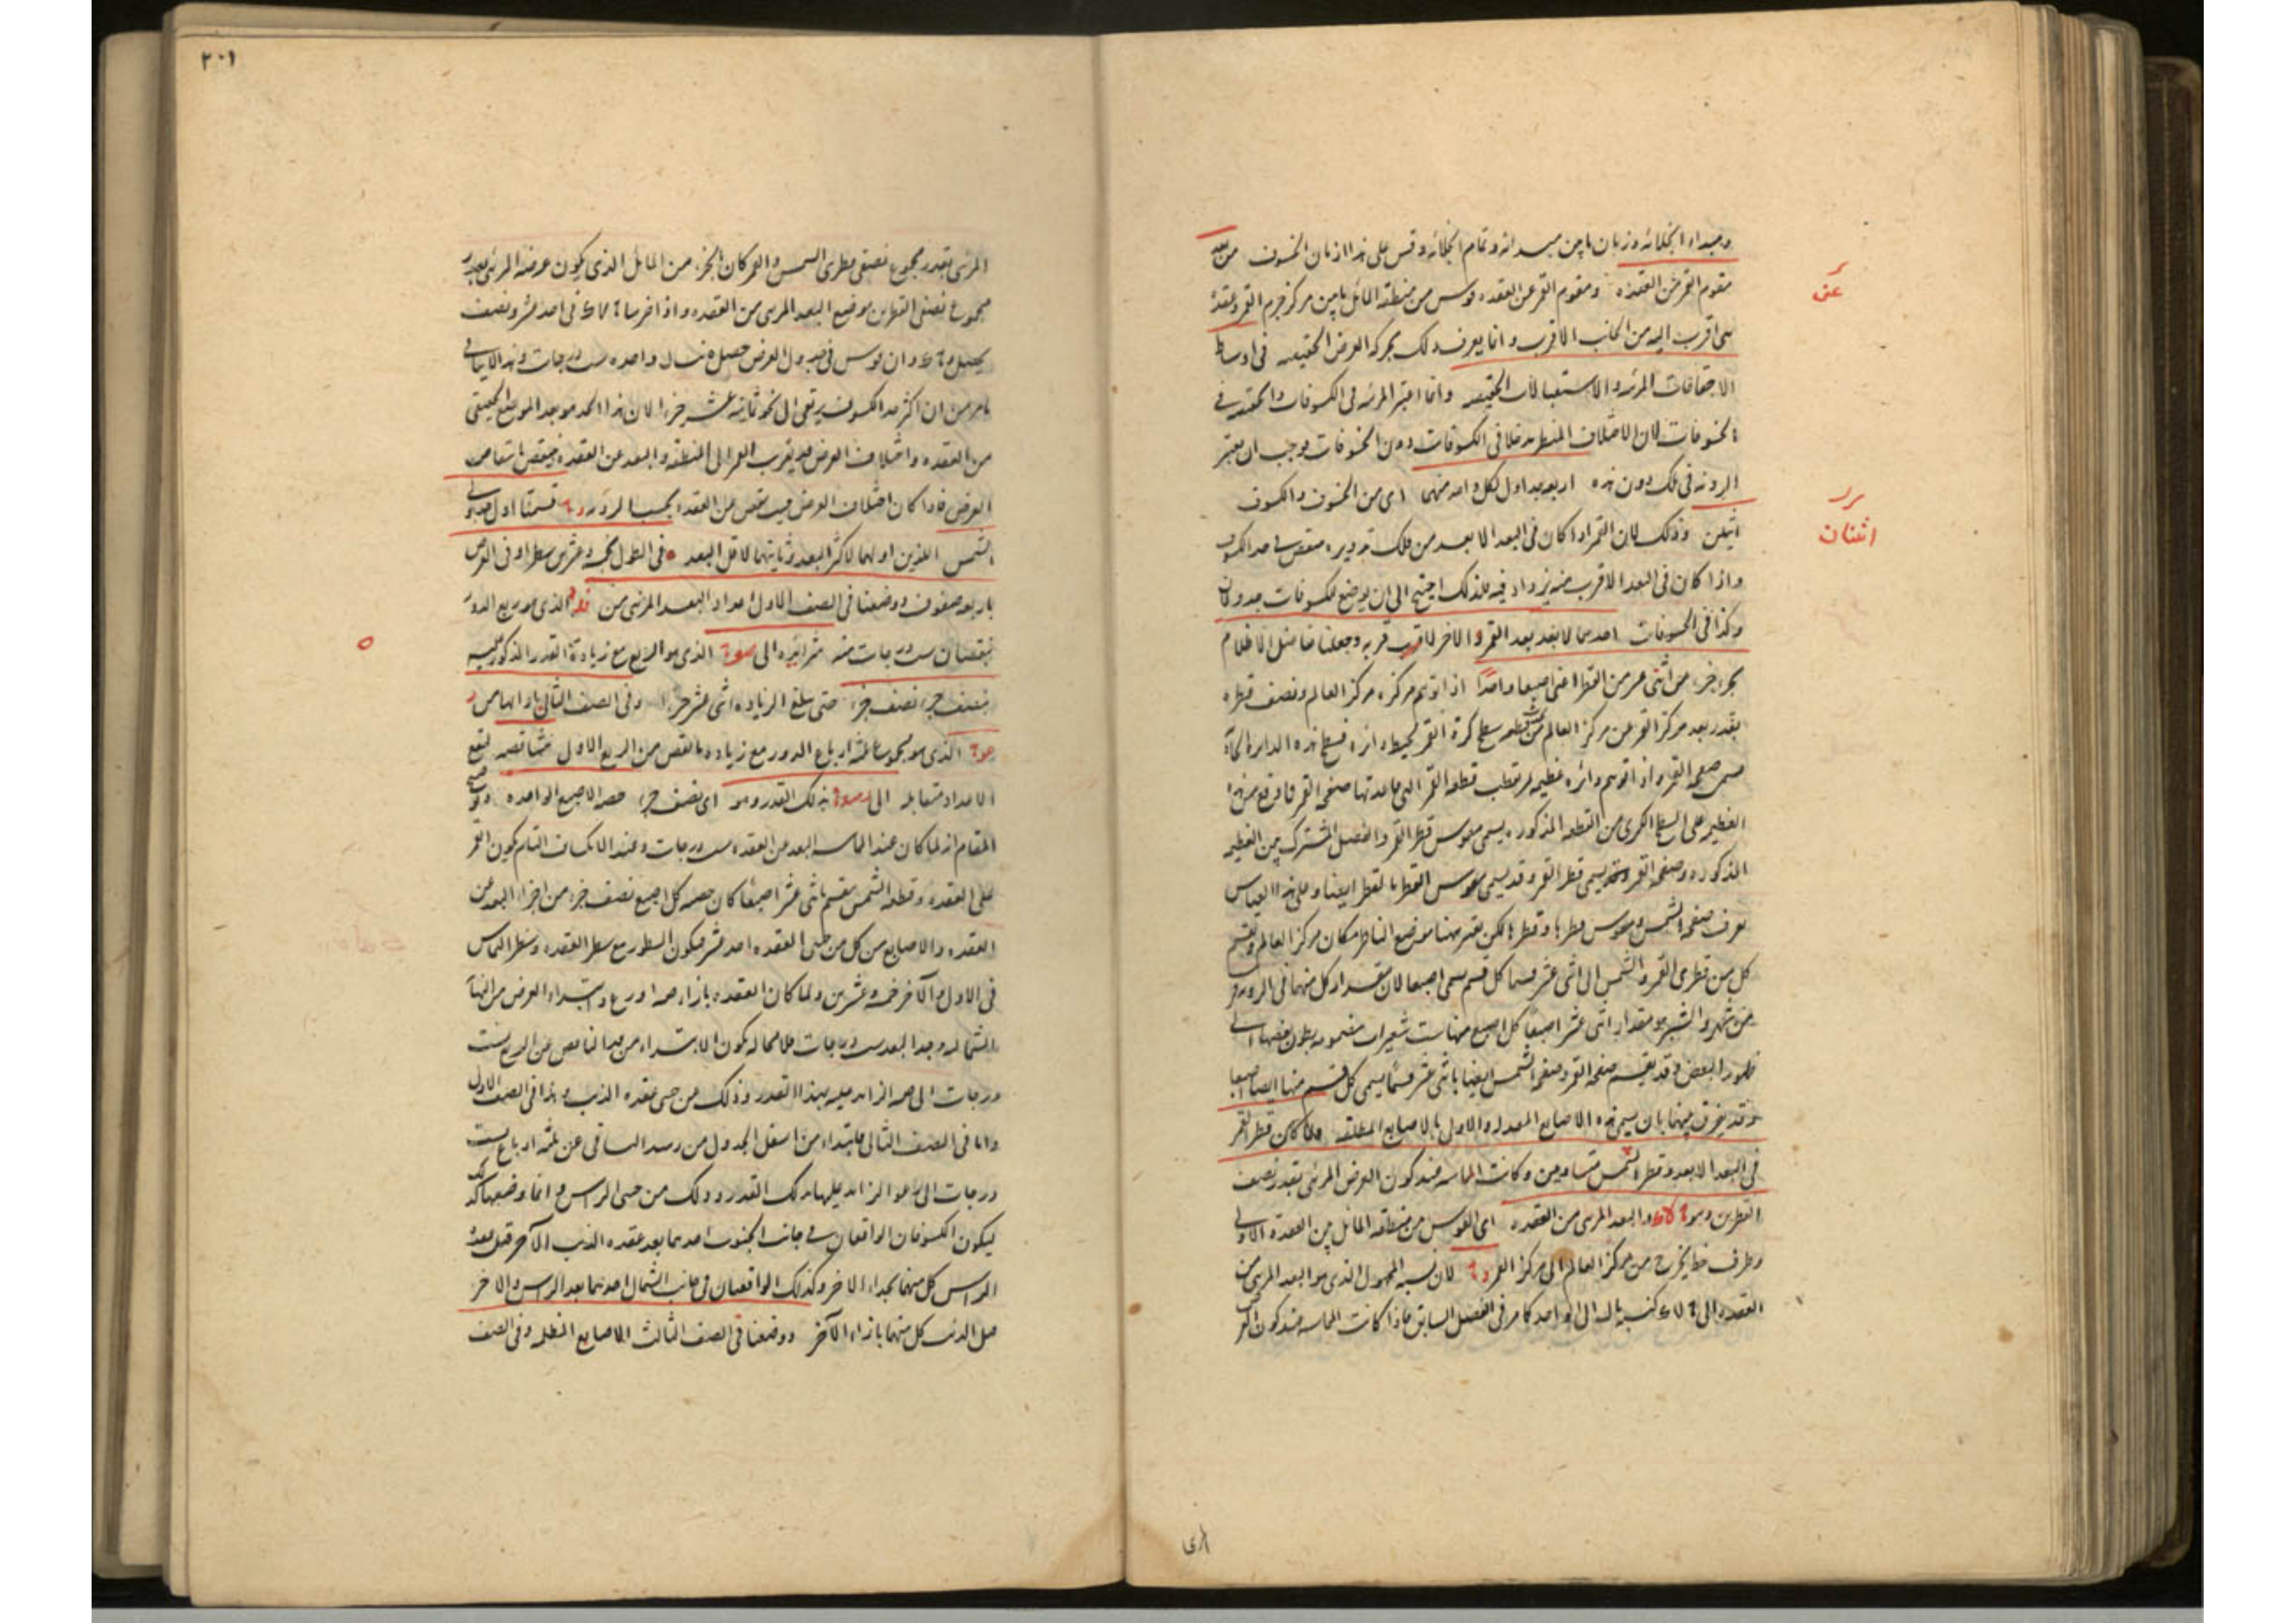 ومبداء انجلائه وزمان ما بين مبدائه وتمام انجلائه وقس على هذا ازمان الخسوف من بعد
مقوم القمر عن العقدة ومقوم القمر عن العقده قوس من منطقه المائل ما بين مركز جرم القمر وعقدة
هى اقرب اليه من الجانب الاقرب وانما يعرف ذلك بحركه العرض الحقيقيه فى اوساط
الاجتماعات المرئيه والاستقبالات الحقيقيه وانما اعتبر المرئيه فى الكسوفات والحقيقيه فى
الخسوفات لان لاختلاف المنظر مدخلا فى الكسوفات دون الخسوفات فوجب ان يعتبر
الرويه فى تلك دون هذه اربعه جداول لكل واحد منهما اى من الخسوف والكسوف
اثنين وذلك لان القمر اذا كان فى البعد الابعد من فلك تدويره ينقص حد الكسوف
واذا كان فى البعد الاقرب منه يزداد فيه فلذلك احتيج الى ان يوضع للكسوفات جدولان
وكذا فى الخسوفات احدهما لابعد بعد القمر والاخر لاقرب قربه وجعلنا تفاضل الاظلام
بجزء جزء من اثنى عشر من القطر اعنى اصبعا واحدا اذا توهم مركزه مركز العالم ونصف قطره
بقدر بعد مركز القمر عن مركز العالم سطح كرة القمر يحيط دائرة فسطح هذه الدايرة
صفحه القمر واذا توهم دائره عظيمه مر بقطب قطعه القمر التى قاعدتها صفحه القمر فما وقع من هذا
العظيمه على السطح الكرى من القطعه المذكوره يسمى مقوس قطر القمر والفصل المشترك بين العظيمه
المذكوره وصفحه القمر يسمى قطر القمر وقد يسمى مقوس القطر بالقطر ايضا وعلى هذا القياس
يعرف صفحه الشمس ومقوس قطرها وقطرها لكن يعتبر ههنا موضع الناظر مكان مركز العالم ويقسم
كل من قطرى القمر والشمس الى اثنى عشر قسما كل قسم يسمى اصبعا لان مقدار كل منهما فى الرويه
من شهر والشبر هو مقدار اثنى عشر اصبعا كل اصبع منها ست شعيرات مضمومه بطون بعضها الى
ظهور البعض وقد يقسم صفحه القمر وصفحه الشمس ايضا باثنى عشر قسما يسمى كل قسم منها ايضا اصبعا
وقد يفرق بينهما بان يسمى هذه الاصابع المعدله والاول بالاصابع المطلقه ولما كان قطر القمر
فى البعد الابعد وقطر الشمس متساويين وكانت المماسه عند كون العرض المرئى بقدر نصف
القطرين وهو والبعد المرئى من العقده اى القوس من منطقه المائل بين العقدة الاولى
وطرف خط يخرج من مركز العالم الى مركز القمر لان نسبه المجهول الذى هو البعد المرئى من
العقده الى كنسبه الى الواحد كما مر فى الفصل السابق فاذا كانت المماسه عند كون العرض
عن
اثنتان
٢٠١
المرئى بقدر مجموع نصفى قطرى الشمس والقمر كان الجزء من المائل الذى يكون عرضه المرئى بقدر
مجموع نصفى القطرين موضع البعد المرئى من العقده واذا ضربنا فى احد عشر ونصف
يحصل وان قوس فى جدول العرض حصل مثال واحده ست درجات وهذا لا ينافى
ما مر من ان اكثر حد الكسوف يرتقى الى نحو ثمانيه عشر جزءا لان هذا الحد هو بعد الموضع الحقيقى
من العقده واختلاف العرض قد يقرب القمر الى المنطقه والبعد عن العقده فينقص بانتقاص
العرض فاذا كان اختلاف العرض فيه ينقص عن العقده بحسب الرؤيه قسمنا اول جدولى
الشمس اللذين اولهما لاكثر البعد وثانيهما لاقل البعد فى الطول بخمسه وعشرين سطرا وفى العرض
باربعه صفوف ووضعنا فى الصف الاول اعداد البعد المرئى من الذى هو ربع الدور
بنقصان ست درجات منه متزايده الى الذى هو الربع مع زيادة القدر المذكور عليه
بنصف جزء نصف جزء حتى يبلغ الزياده اثنى عشر جزءا وفى الصف الثانى ازائها من
الذى هو مجموع ثلثه ارباع الدور مع زياده ما نقص من الربع الاول متناقصه ليقع
الاعداد متقابله الى بذلك القدر وهو اى نصف جزء حصه الاصبع الواحده
المقام انه لما كان عند المماسه البعد عن العقده ست درجات وعند الانكساف التام يكون القمر
على العقده وقطعه الشمس ينقسم باثنى عشر اصبعا كان حصه كل اصبع نصف جزء من اجزاء البعد عن
العقده والاصابع من كل من جنبى العقده احد عشر فيكون السطور مع سطر العقده وسطرى التماس
فى الاول والآخر خمسه وعشرين ولما كان العقده بازاء وابتداء العرض من النهاية
الشماليه وحد البعد ست درجات فلا محاله يكون الابتداء من الناقص عن الربع ست
درجات الى الزائد عليه بهذا القدر وذلك من جنبى عقده الذنب وهذا فى الصف الاول
واما فى الصف الثانى فابتداء من اسفل الجدول من الباقى عن ثلثه ارباع ست
درجات الى الزائد عليها بذلك القدر وذلك من جنبى الراس وانما وضعها كذلك
ليكون الكسوفان الواقعان فى جانب الجنوب احدهما بعد عقده الذنب والآخر قبل عقدة
الراس كل منهما بحذاء الاخر وكذلك الواقعان فى جانب الشمال احدهما بعد الراس والاخر
قبل الذنب كل منهما بازاء الآخر ووضعنا فى الصف الثالث الاصابع المظلمه وفى الصف